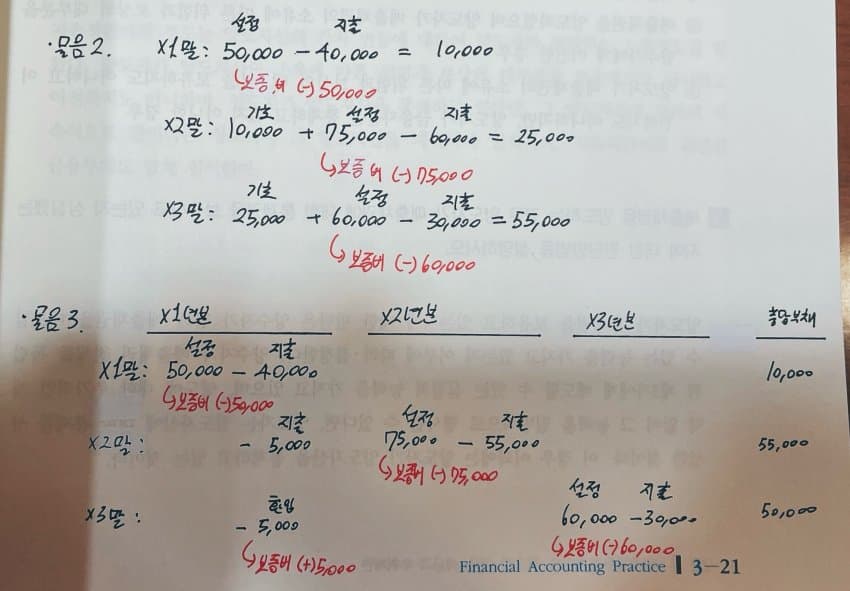 설정 지출
·물음2. X1말: 50,000 - 40,000 = 10,000
↳보증비 (-)50,000
기초 설정 지출
X2말: 10,000 + 75,000 - 60,000 = 25,000
↳보증비 (-)75,000
기초 설정 지출
X3말: 25,000 + 60,000 - 30,000 = 55,000
↳보증비 (-)60,000
·물음3. X1년분 X2년분 X3년분 충당부채
설정 지출
X1말: 50,000 - 40,000 10,000
↳보증비 (-)50,000
지출 설정 지출
X2말: - 5,000 75,000 - 55,000 55,000
↳보증비 (-)75,000
환입 설정 지출
X3말: - 5,000 60,000 -30,000 50,000
↳보증비 (+)5,000 ↳보증비 (-)60,000
Financial Accounting Practice | 3-21